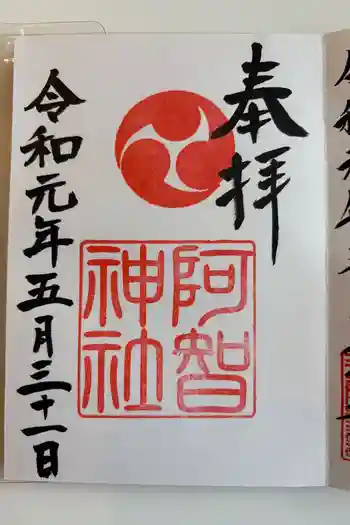 奉拝
阿智
神社
令和元年五月三十一日